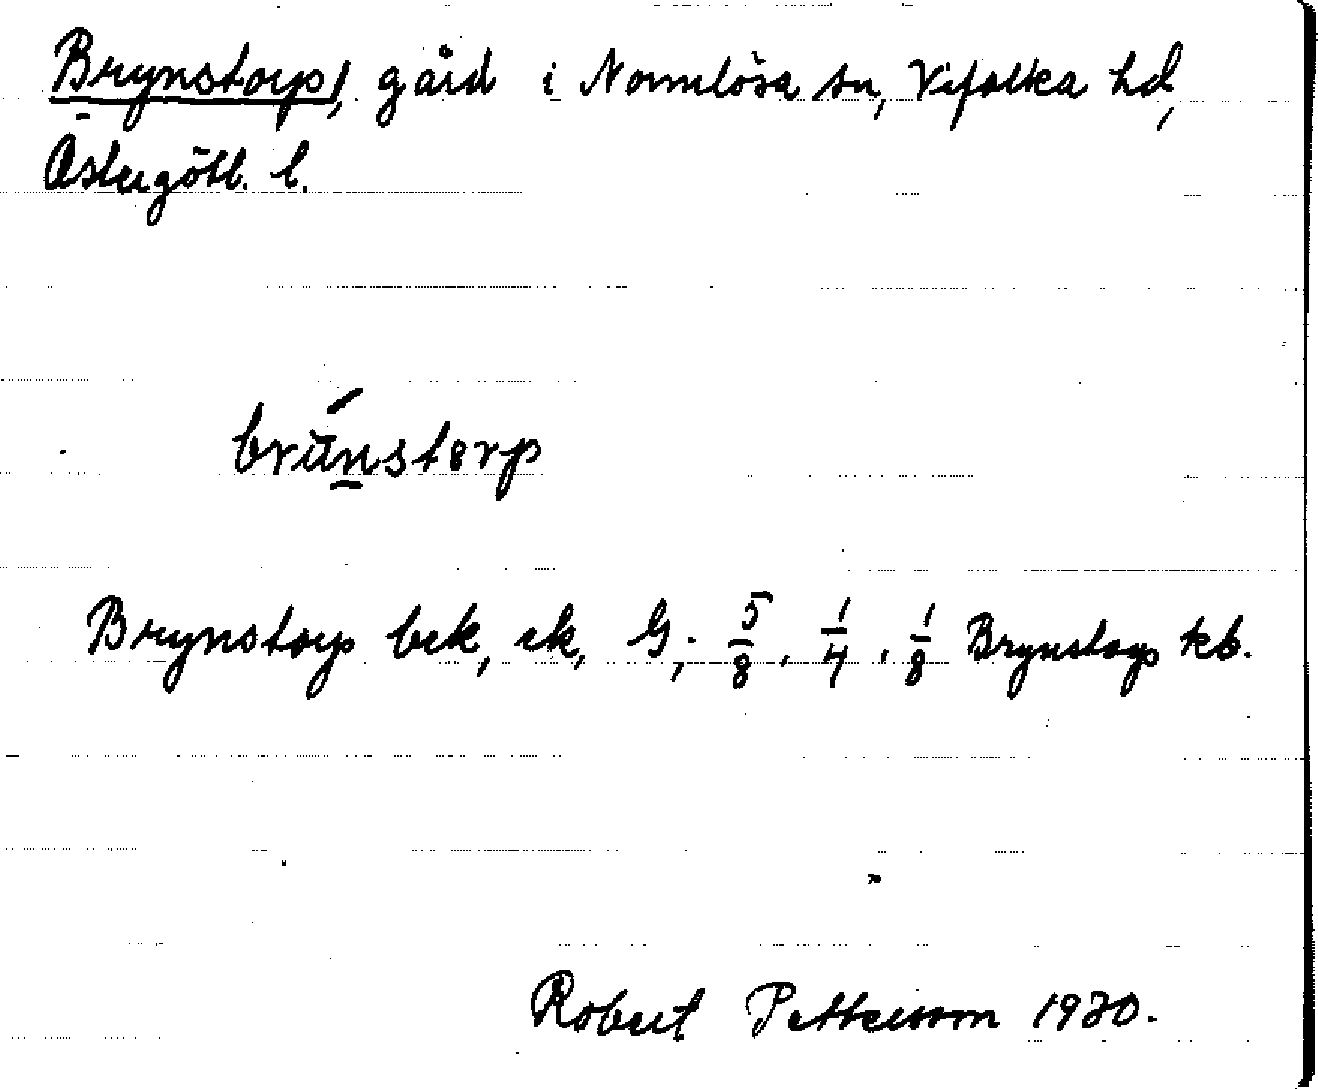 Brynstorp, gård i Normlösa sn, Vifolka hd,
Östergötl. l.
brünstorp
Brynstorp bek, ek, G; 5/8, 1/4, 1/8 Brynstorp kb.
Robert Pettersson 1930.